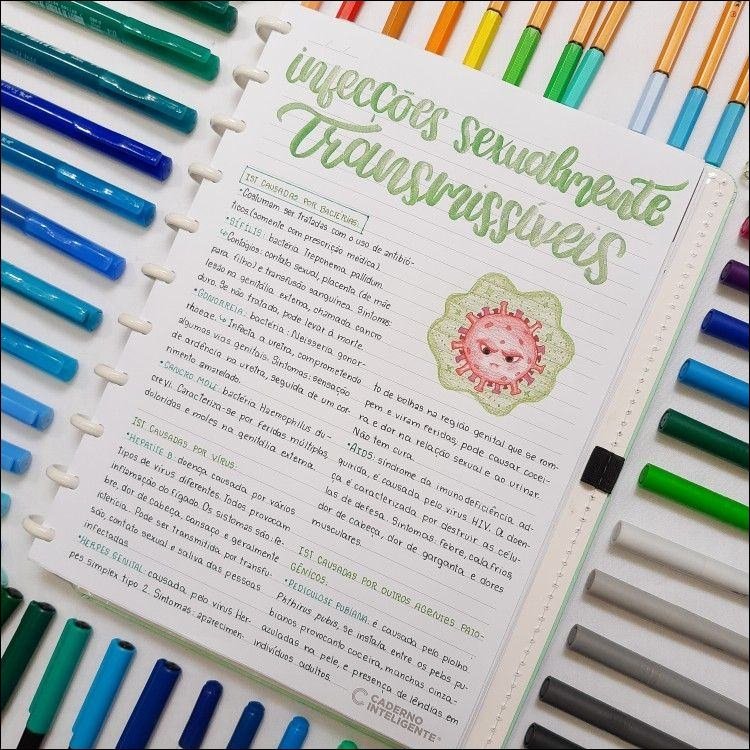 infecções sexualmente
Transmissíveis
IST CAUSADAS POR BACTÉRIAS:
• Costumam ser tratadas com o uso de antibió-
ticos (somente com prescrição médica).
• SÍFILIS: bactéria Treponema pallidum.
↳ Contágios: contato sexual, placenta (de mãe
para filho) e transfusão sanguínea. Sintomas:
lesão na genitália externa, chamada cancro
duro. Se não tratado, pode levar à morte.
• GONORREIA: bactéria: Neisseria gonor-
rhoeae. ↳ Infecta a uretra, comprometendo
algumas vias genitais. Sintomas: sensação
de ardência na uretra, seguida de um cor-
rimento amarelado.
• CANCRO MOLE: bactéria Haemophilus du-
creyi. Caracteriza-se por feridas múltiplas,
doloridas e moles na genitália externa.
IST CAUSADAS POR VÍRUS:
• HEPATITE B: doença causada por vários
tipos de vírus diferentes. Todos provocam
inflamação do fígado. Os sistomas são: fe-
bre, dor de cabeça, cansaço e geralmente
icterícia. Pode ser transmitida por transfu-
são, contato sexual e saliva das pessoas
infectadas.
• HERPES GENITAL: causada pelo vírus Her-
pes simplex tipo 2. Sintomas: aparecimen-
to de bolhas na região genital que se rom-
pem e viram feridas, pode causar cocei-
ra, e dor na relação sexual e ao urinar.
Não tem cura.
• AIDS: síndrome da imunodeficiência ad-
quirida, é causada pelo vírus HIV. A doen-
ça é caracterizada por destruir as célu-
las de defesa. Sintomas: febre, calafrios,
dor de cabeça, dor de garganta e dores
musculares.
IST CAUSADAS POR OUTROS AGENTES PATO-
GÊNICOS:
• PEDICULOSE PUBIANA: é causada pelo piolho
Phthirus pubis, se instala entre os pelos pu-
bianos provocanto coceira, manchas cinza-
azuladas na pele, e presença de lêndias em
indivíduos adultos.
CADERNO
INTELIGENTE®